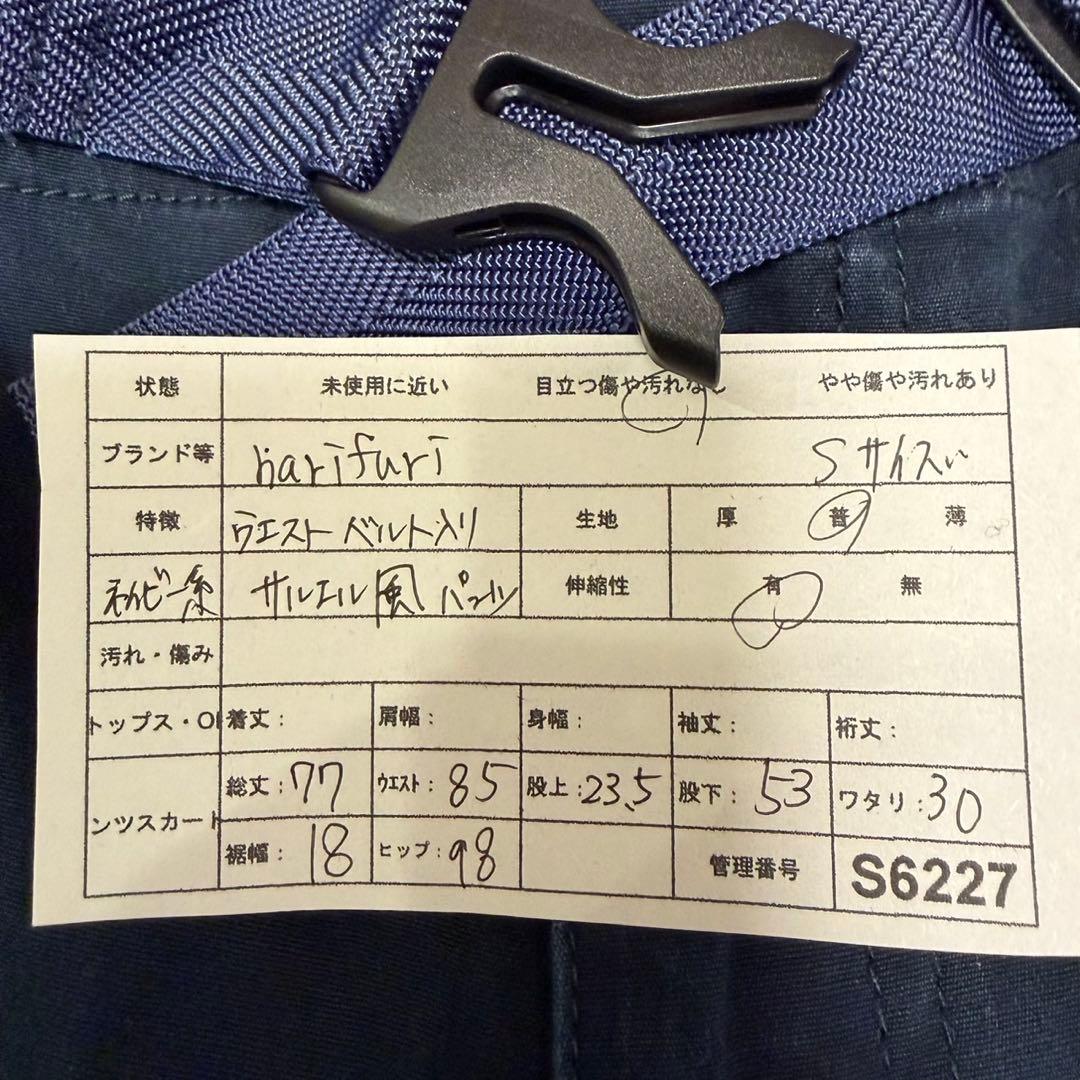 状態 未使用に近い 目立つ傷や汚れなし やや傷や汚れあり
ブランド等 narifuri Sサイズ
特徴 ウエストベルト入り 生地 厚 普 薄
ネイビー系 サルエル風パンツ 伸縮性 有 無
汚れ・傷み
トップス・O 着丈: 肩幅: 身幅: 袖丈: 裄丈:
ンツスカート 総丈:77 ウエスト:85 股上:23.5 股下:53 ワタリ:30
裾幅:18 ヒップ:98 管理番号 S6227